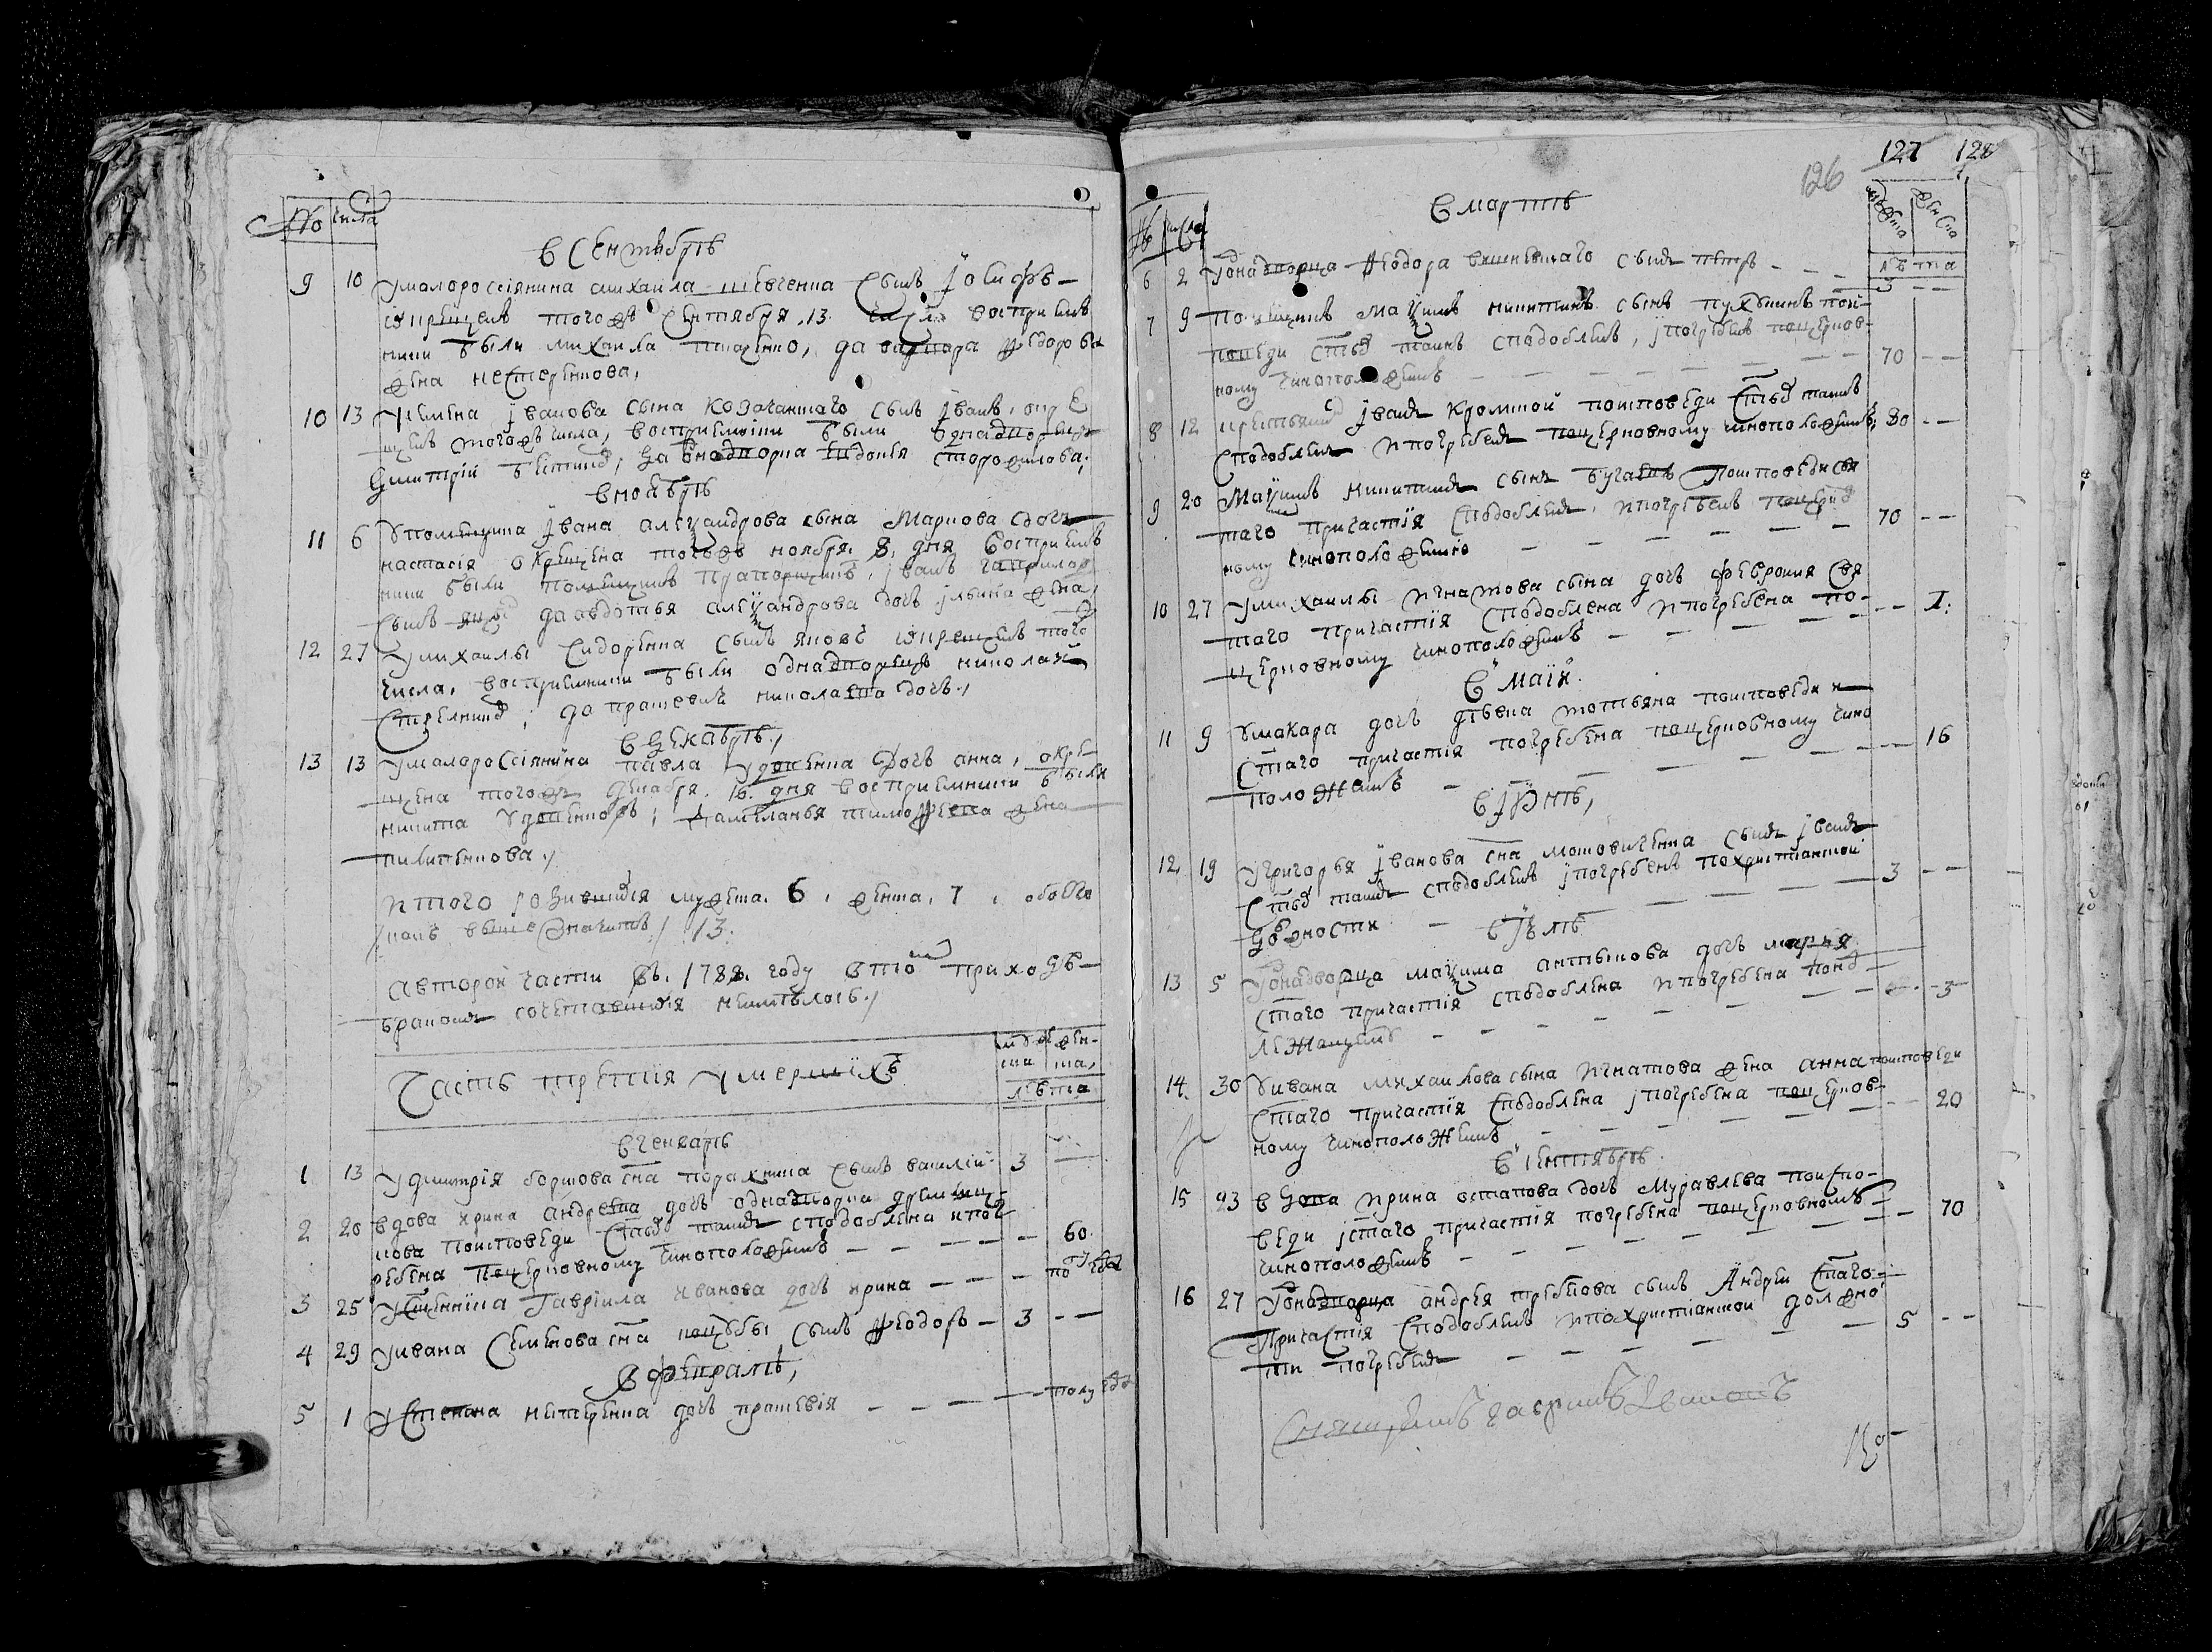 № числа
в сентябрѣ
9 10 У малоросіянина михайла шевченка сынъ Іосифъ
окрещенъ тогожъ сентября 13 числа восприемъ
ники были михаила да варвара федорова
жена нестеренкова,
10 13 У семена іванова сына козачанскаго сынъ іванъ, окре
щенъ тогожъ числа, восприемники были однадворецъ
димитрій да внодворка евдокія сторожилова,
в ноябрѣ
11 6 У помещика івана алеѯандрова сына маркова дочь
настасія окрещена тогожъ ноября 8 дня восприемъ
ники были помещикъ прапорщикъ іванъ гавриловъ
сынъ да авдотья алеѯандрова дочь ильина жена,
12 27 У михаилы сидоренка сынъ яковъ окрещенъ того
числа, восприемники были однадворецъ николай
да прасковия николаева дочь,
в декабрѣ,
13 13 У малоросіянина павла удовенка дочь анна, окре
щена тогожъ декабря 16 дня восприемники были
никита удовенковъ, да меланья тимофеева жена
пилипенкова,
итого родившихся мужеска 6, женска 7, обоего
какъ выше значитъ 13.
а второй части въ 1788 году в томъ приходѣ
бракомъ сочетавшихся неимѣлось,
Часть третія умершихъ
муже женс
ска ка,
лѣта
в генварѣ
1 13 У дмитрія сна сынъ василій 3 —
2 20 вдова ирина андреева дочь однадворка
кова поисповеди стыхъ таинъ сподоблена ипог
ребена поцерковному чиноположению — — — 60
3 25 Гавріила иванова дочь ирина — — — полгода
4 29 У ивана семенова сна сынъ федоръ — 3 — —
в февралѣ,
5 1 У степана нестеренка дочь прасковія — — — полугода
126 127 128
№ числа
в мартѣ
мужеска женска
лѣта
6 2 У однадворца феодора вишневскаго сынъ петръ — — — 3 — —
7 9 помещикъ маѯимъ никитинъ сынъ поис
поведи стыхъ таинъ сподобленъ, іпогребенъ поцерков
ному чиноположению — — — 70 — —
8 12 іванъ кромской поисповеди стыхъ таинъ
сподобленъ ипогребенъ поцерковному чиноположению, 80 — —
9 20 маѯимъ никитинъ сынъ поисповеди свя
таго причастія сподобленъ, ипогребенъ поцерков
ному чиноположению — — — 70 — —
10 27 У михаилы игнатова сына дочь феврония свя
таго причастія сподоблена ипогребена по
церковному чиноположению — — — 1:
в маія
11 9 У макара дочь девка татьяна поисповеди и
стаго причастія погребена поцерковному чино
положению — — — 16
в іюнѣ,
12 19 У григорья іванова сна сынъ іванъ
стыхъ таинъ сподобленъ іпогребенъ похристианской
должности — — — 3 — —
в іюлѣ
13 5 У однадворца маѯима антипова дочь марья
стаго причастія сподоблена ипогребена понад
лежащему — — — 3
14 30 У ивана михаилова сына игнатова жена анна поисповеди
стаго причастія сподоблена іпогребена поцерков
ному чиноположению — — — 20
в сентябрѣ
15 23 вдова ирина остапова дочь муравлева поиспо
веди істаго причастія погребена поцерковному
чиноположению — — — 70
16 27 У однадворца андрея сынъ андрей стаго
причастія сподобленъ ипохристианской должно
сти погребенъ — — — 5 — —
священникъ гавриилъ